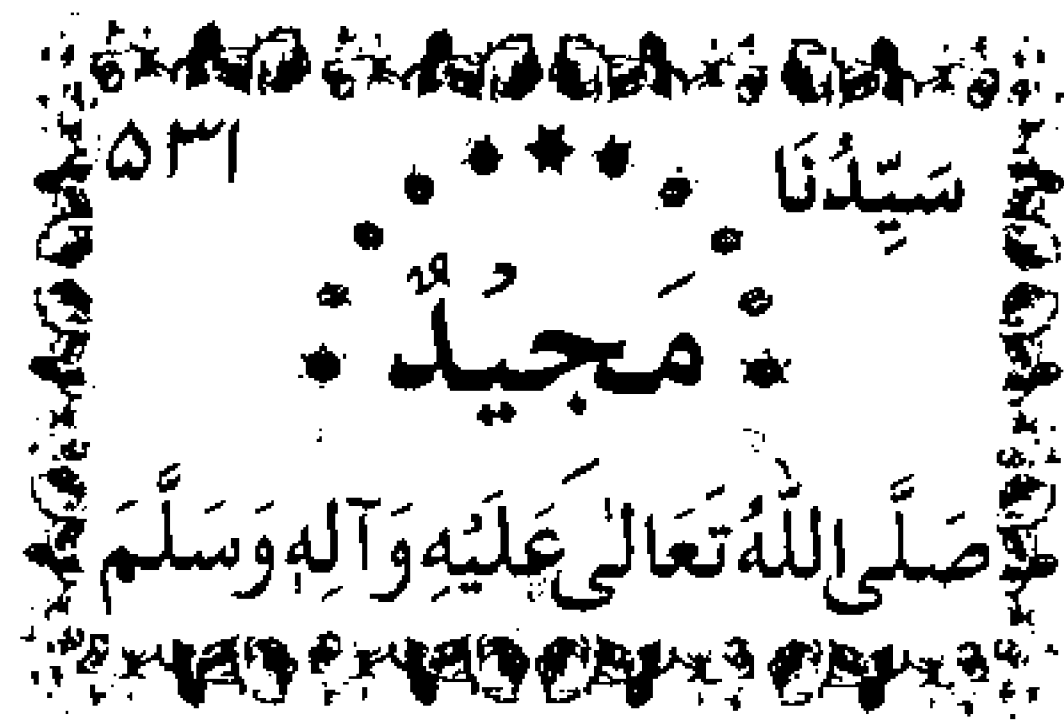 سَيِّدُنَا ۵۳۱
مَجيْدٌ
صَلَّى اللّٰهُ تَعَالٰى عَلَيْهِ وَآلِهٖ وَسَلَّمَ